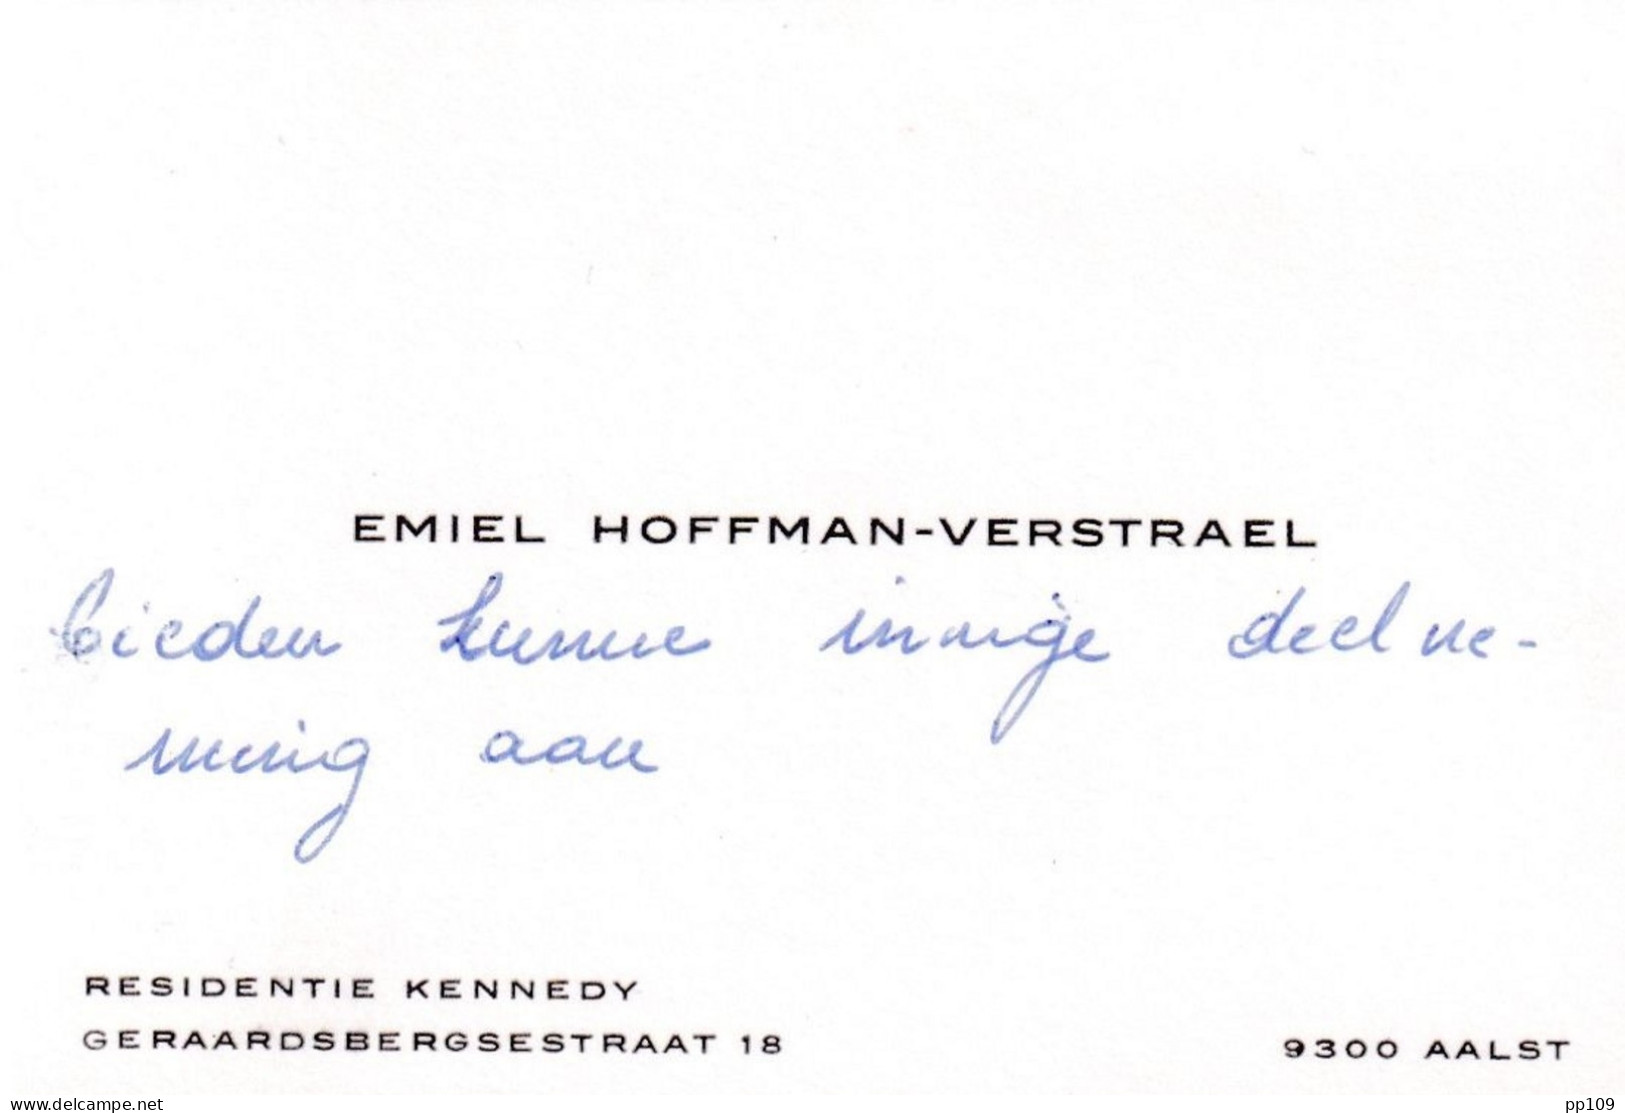 EMIEL HOFFMAN-VERSTRAEL
bieden hunne innige deelne-
ming aan
RESIDENTIE KENNEDY
GERAARDSBERGSESTRAAT 18
9300 AALST
www.delcampe.net
pp109